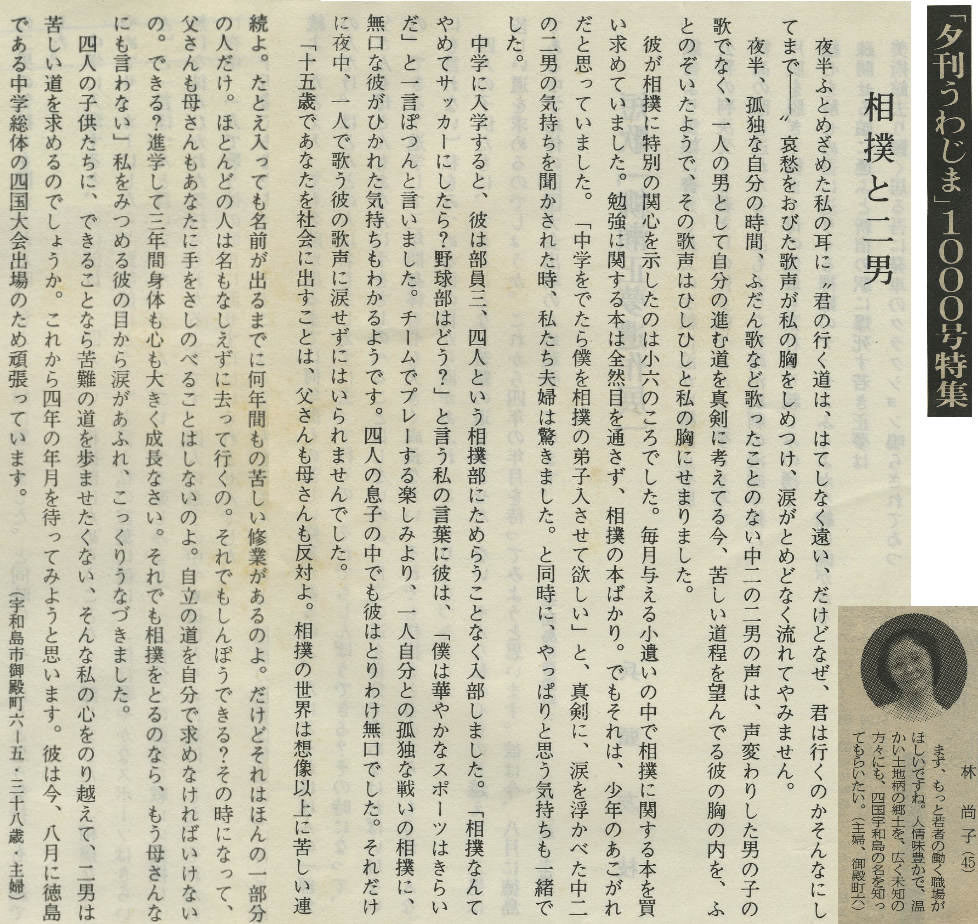 「夕刊うわじま」1000号特集
相撲と二男
夜半ふとめざめた私の耳に〝君の行く道は、はてしなく遠い、だけどなぜ、君は行くのかそんなにし
てまで――〟哀愁をおびた歌声が私の胸をしめつけ、涙がとめどなく流れてやみません。
夜半、孤独な自分の時間、ふだん歌など歌ったことのない中二の二男の声は、声変わりした男の子の
歌でなく、一人の男として自分の進む道を真剣に考えてる今、苦しい道程を望んでる彼の胸の内を、ふ
とのぞいたようで、その歌声はひしひしと私の胸にせまりました。
彼が相撲に特別の関心を示したのは小六のころでした。毎月与える小遣いの中で相撲に関する本を買
い求めていました。勉強に関する本は全然目を通さず、相撲の本ばかり。でもそれは、少年のあこがれ
だと思っていました。「中学をでたら僕を相撲の弟子入させて欲しい」と、真剣に、涙を浮かべた中二
の二男の気持ちを聞かされた時、私たち夫婦は驚きました。と同時に、やっぱりと思う気持ちも一緒で
した。
中学に入学すると、彼は部員三、四人という相撲部にためらうことなく入部しました。「相撲なんて
やめてサッカーにしたら？野球部はどう？」と言う私の言葉に彼は、「僕は華やかなスポーツはきらい
だ」と一言ぽつんと言いました。チームでプレーする楽しみより、一人自分との孤独な戦いの相撲に、
無口な彼がひかれた気持ちもわかるようです。四人の息子の中でも彼はとりわけ無口でした。それだけ
に夜中、一人で歌う彼の歌声に涙せずにはいられませんでした。
「十五歳であなたを社会に出すことは、父さんも母さんも反対よ。相撲の世界は想像以上に苦しい連
続よ。たとえ入っても名前が出るまでに何年間もの苦しい修業があるのよ。だけどそれはほんの一部分
の人だけ。ほとんどの人は名もなしえずに去って行くの。それでもしんぼうできる？その時になって、
父さんも母さんもあなたに手をさしのべることはしないのよ。自立の道を自分で求めなければいけない
の。できる？進学して三年間身体も心も大きく成長なさい。それでも相撲をとるのなら、もう母さんな
にも言わない」私をみつめる彼の目から涙があふれ、こっくりうなづきました。
四人の子供たちに、できることなら苦難の道を歩ませたくない、そんな私の心をのり越えて、二男は
苦しい道を求めるのでしょうか。これから四年の年月を待ってみようと思います。彼は今、八月に徳島
である中学総体の四国大会出場のため頑張っています。（宇和島市御殿町六―五・三十八歳・主婦）
林　尚子（45）
まず、もっと若者の働く職場が
ほしいですね。人情味豊かで、温
かい土地柄の郷土を、広く未知の
方々にも、四国宇和島の名を知っ
てもらいたい。（主婦、御殿町六）